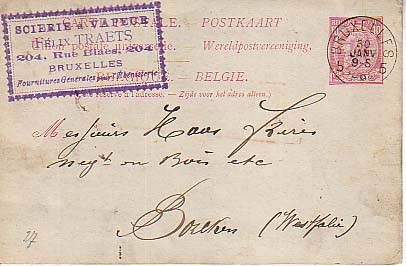 SCIERIE A VAPEUR
FÉLIX TRAETS
204, Rue Blaes, 204
BRUXELLES
Fournitures Générales pour Ébénisterie
CARTE POSTALE. POSTKAART
Union postale universelle. Wereldpostvereeniging.
BELGIQUE. — BELGIE.
(Côté réservé à l'adresse. — Zijde voor het adres alleen.)
BRUXELLES
30
JANV
9-S
5 5
Messieurs Haas frères
negt en Bois etc
Borken (Westfalie)
27